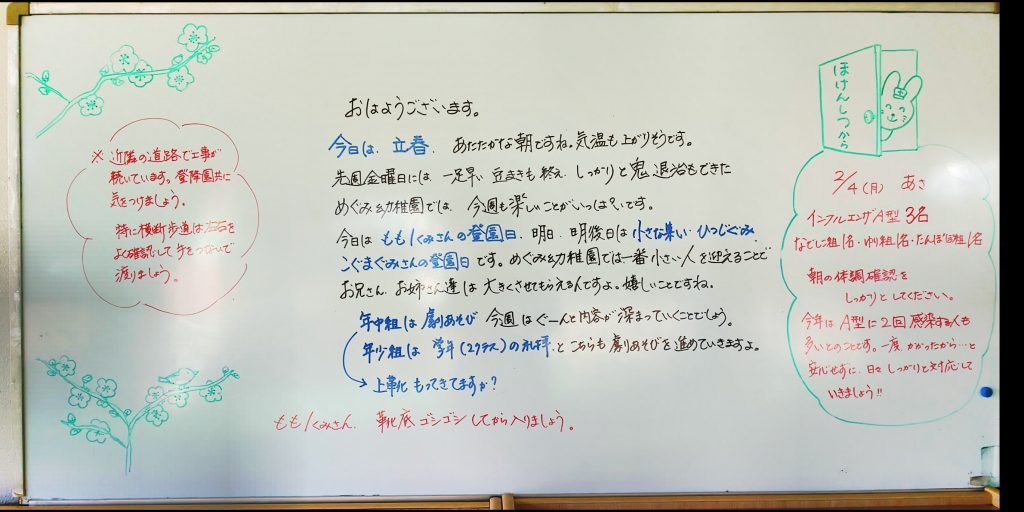 おはようございます。
今日は、立春、あたたかな朝ですね。気温も上がりそうです。
先週金曜日には、一足早い 豆まきも終え、しっかりと鬼退治もできた
めぐみ幼稚園では、今週も楽しいことがいっぱいです。
今日は もも1くみさんの登園日、明日、明後日は 小さな集い・ひつじぐみ
こぐまぐみさんの登園日です。めぐみ幼稚園では一番小さい人を迎えることで
お兄さん、お姉さん達は 大きくさせてもらえるんですよ。嬉しいことですね。
年中組は 劇あそび 今週はぐーんと内容が深まっていくことでしょう。
年少組は 学年(2クラス)の礼拝、と こちらも劇あそびを進めていきますよ。
→ 上靴 もってきてますか?
もも1くみさん、靴底 ゴシゴシ してから入りましょう。
※ 近隣の道路で工事が
続いています。登降園共に
気をつけましょう。
特に横断歩道は左右を
よく確認して 手をつないで
渡りましょう。
ほけんしつから
2/4(月) あさ
インフルエンザA型 3名
なでしこ組1名・ゆり組1名・たんぽぽ組1名
朝の体調確認を
しっかりとしてください。
今年は A型に2回感染する人も
多いとのことです。一度 かかったから…と
安心せずに、日々 しっかりと対応して
いきましょう!!